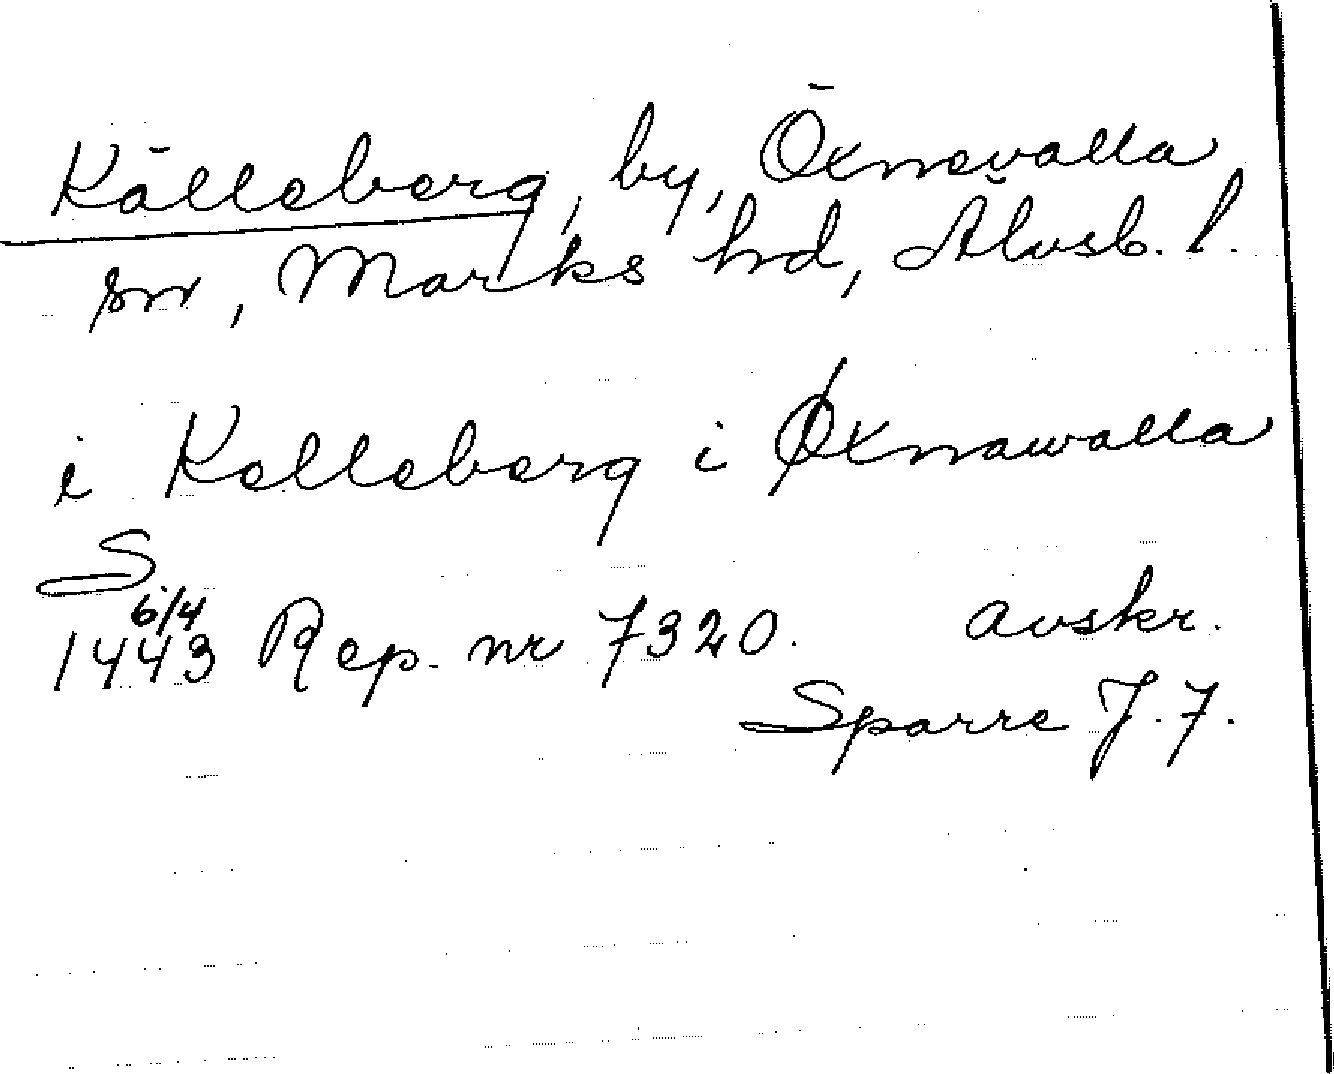 Källeberg, by, Öxnevalla
sn, Marks hd, Älvsb. l.
i Kelleberg i Øxnawalla
S
6/4
1443 Rep. nr 7320. avskr.
Sparre J. 7.